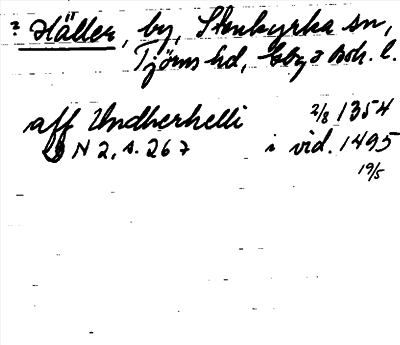 ? Häller, by, Stenkyrka sn,
Tjörns hd, Gbg o Boh. l.
aff Undherhelli 2/8 1354
DN 2, s. 267 i vid. 1495
19/5